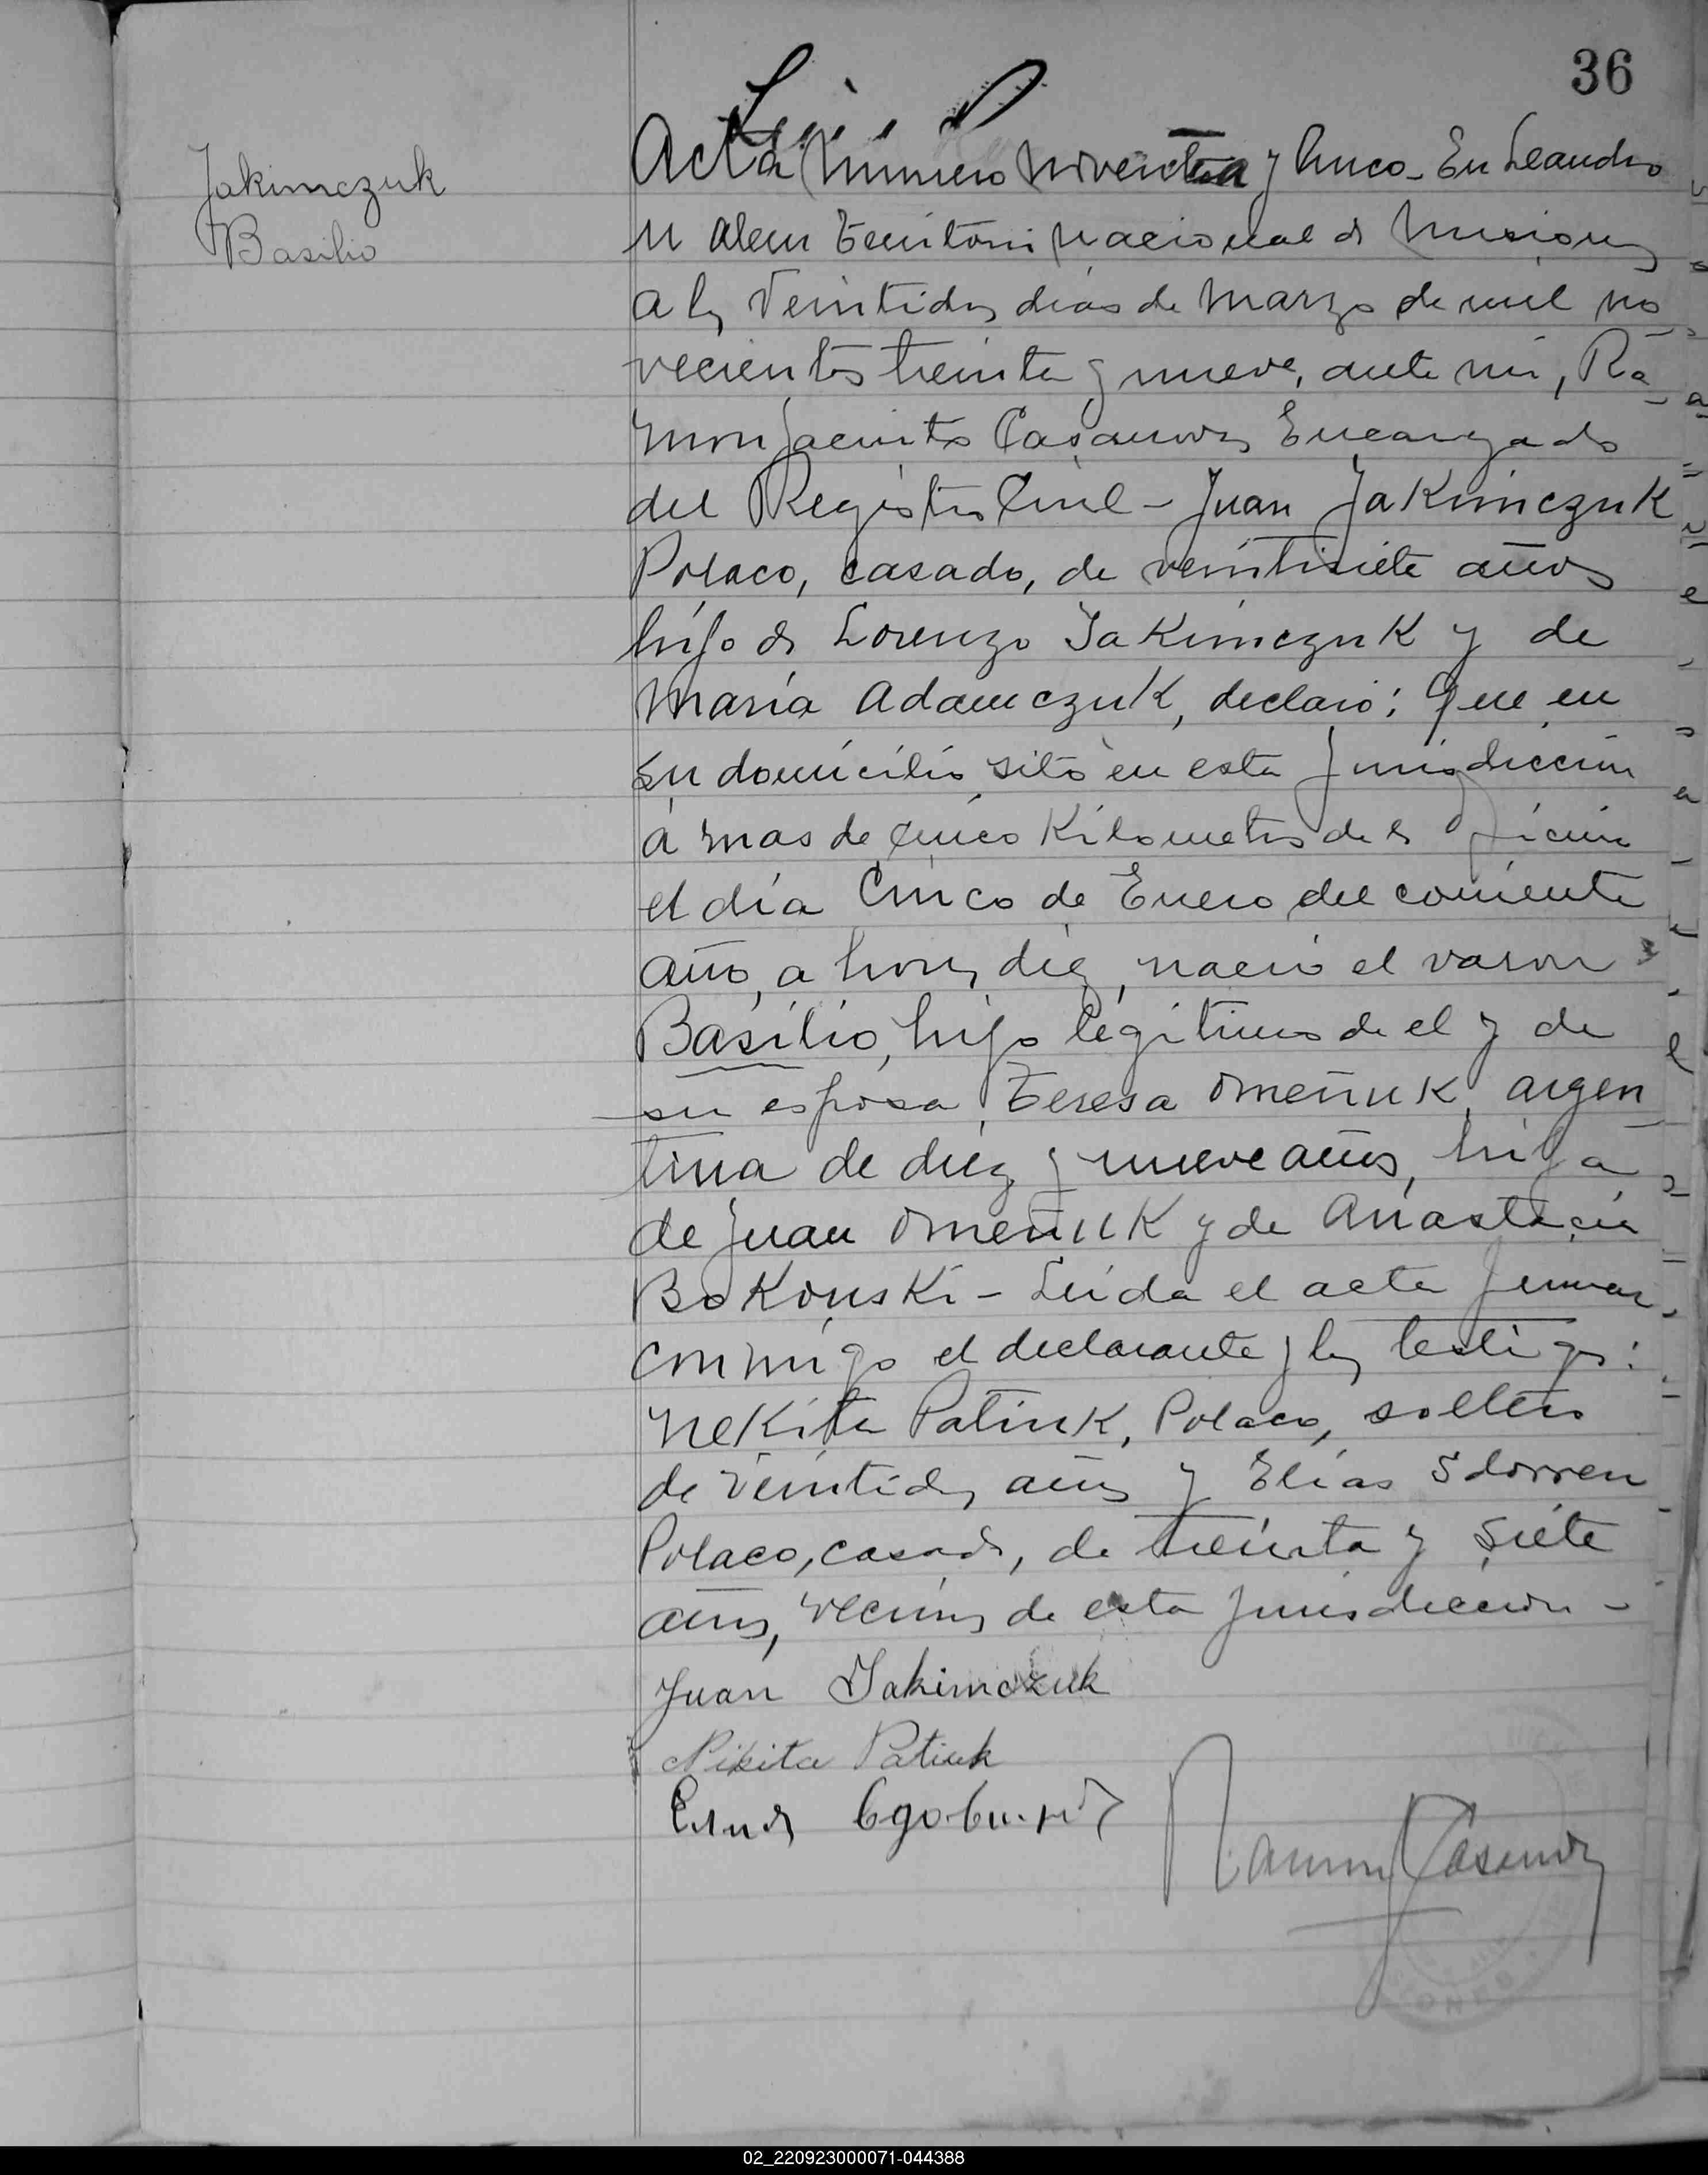 36
Jakimczuk
Basilio
Acta Numero Noventa y Cinco - En Leandro
N Alem Territorio Nacional de Misiones
a los Veintidos dias de Marzo de mil no
vecientos treinta y nueve, ante mi, Ra
mon Jacinto Casanova Encargado
del Registro Civil - Juan Jakimczuk
Polaco, casado, de veintisiete años
hijo de Lorenzo Jakimczuk y de
Maria Adamczuk, declaró: Que en
su domicilio sito en esta jurisdiccion
á mas de cinco Kilometros de la oficina
el día Cinco de Enero del corriente
año, a horas diez, nació el varon
Basilio, hijo legitimo de el y de
su esposa Teresa Omeñuk, argen
tina de diez y nueve años, hija
de Juan Omeñuk y de Anastacia
Bokouski - Leida el acta firman
conmigo el declarante y los testigos:
Nekita Patiuk, Polaco, soltero
de Veintidos años y Elías Sdorren
Polaco, casado, de treinta y siete
años, vecinos de esta jurisdiccion -
Juan Jakimczuk
Nikita Patiuk
Ramon J Casanova
02_220923000071-044388